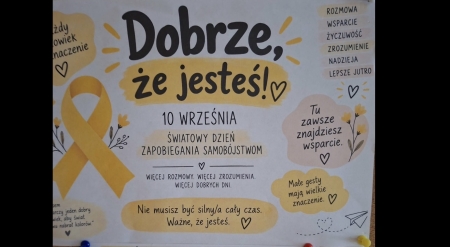 żdy
owiek
naczenie
Dobrze,
że jesteś!
10 WRZEŚNIA
ŚWIATOWY DZIEŃ
ZAPOBIEGANIA SAMOBÓJSTWOM
WIĘCEJ ROZMOWY. WIĘCEJ ZROZUMIENIA.
WIĘCEJ DOBRYCH DNI.
Nie musisz być silny/a cały czas.
Ważne, że jesteś.
ROZMOWA
WSPARCIE
ŻYCZLIWOŚĆ
ZROZUMIENIE
NADZIEJA
LEPSZE JUTRO
Tu
zawsze
znajdziesz
wsparcie.
Małe gesty
mają wielkie
znaczenie.
jeden dobry
świat